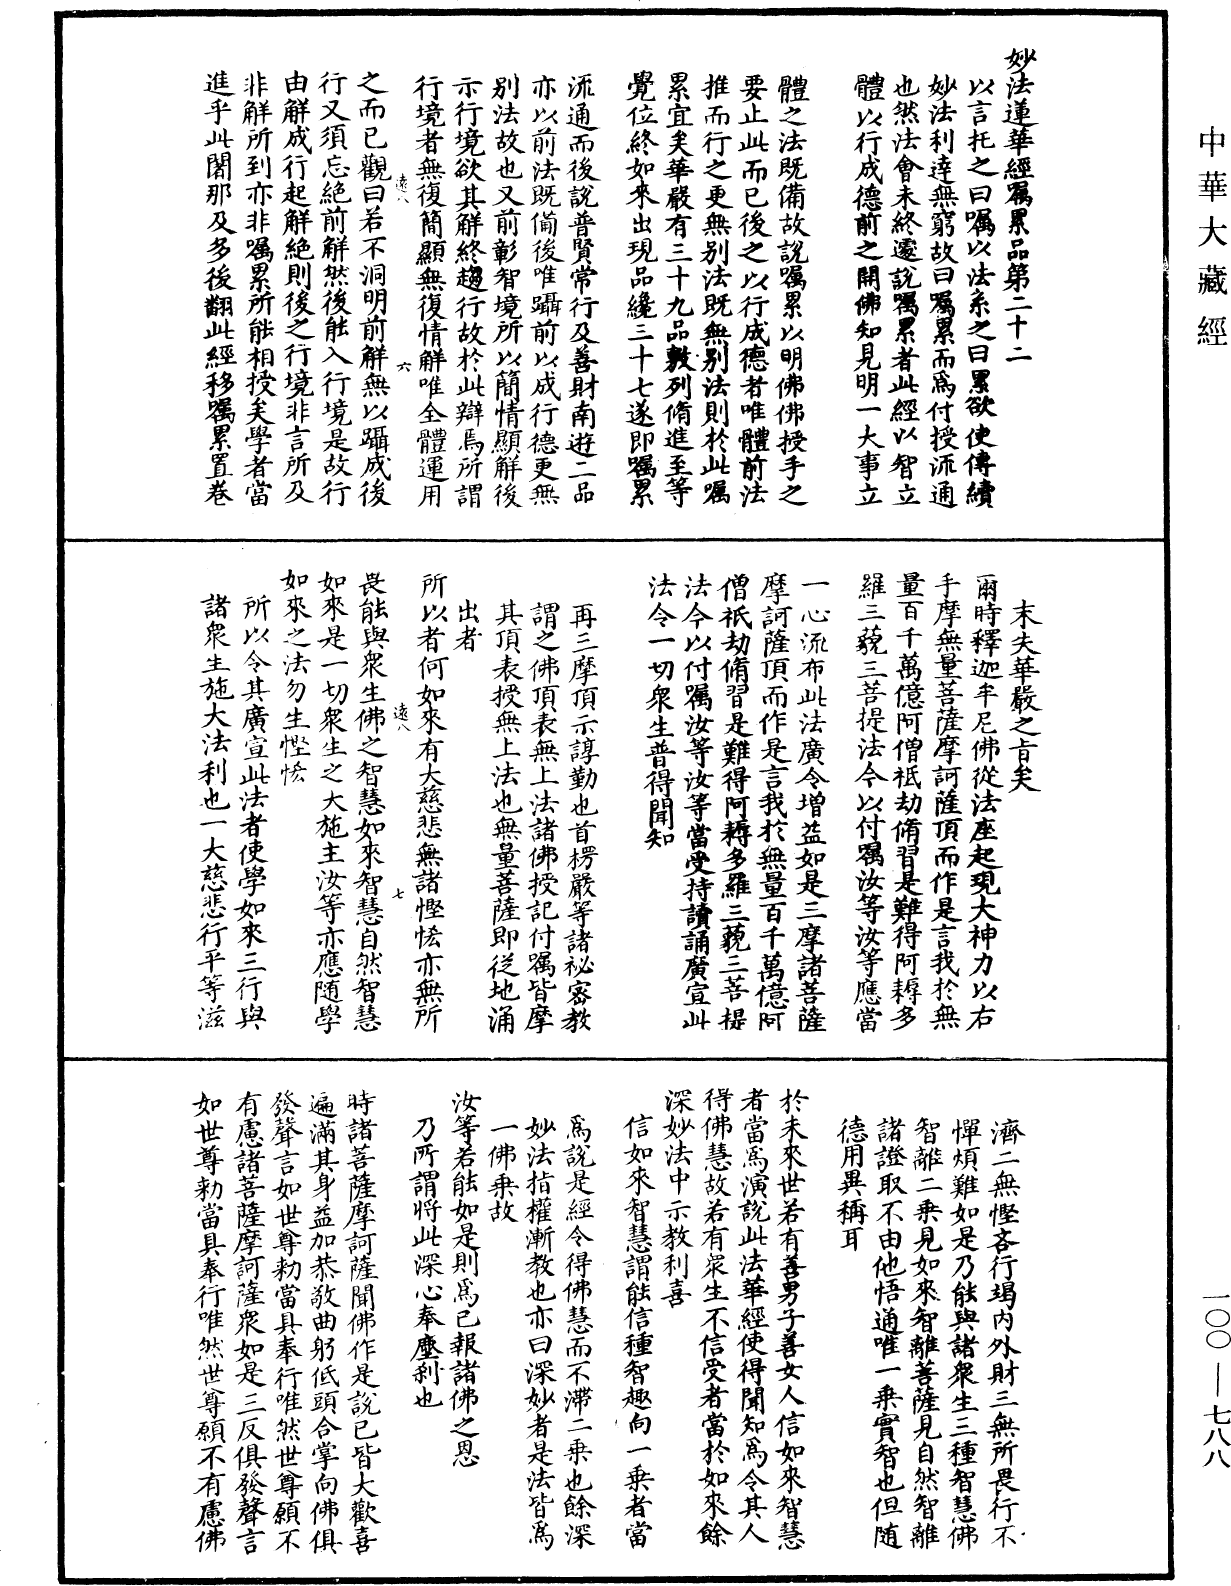 中華大藏經
妙法蓮華經囑累品第二十二
以言托之曰囑以法系之曰累欲使傳續
妙法利達無窮故曰囑累而爲付授流通
也然法會未終遽說囑累者此經以智立
體以行成德前之開佛知見明一大事立
體之法既備故說囑累以明佛佛授手之
要止此而已後之以行成德者唯體前法
推而行之更無別法既無別法則於此囑
累宜矣華嚴有三十九品敷列脩進至等
覺位終如來出現品纔三十七遂即囑累
流通而後說普賢常行及善財南遊二品
亦以前法既備後唯躡前以成行德更無
別法故也又前彰智境所以簡情顯解後
示行境欲其解終趨行故於此辯焉所謂
行境者無復簡顯無復情解唯全體運用
遠八 六
之而已觀曰若不洞明前解無以躡成後
行又須忘絕前解然後能入行境是故行
由解成行起解絕則後之行境非言所及
非解所到亦非囑累所能相授矣學者當
進乎此闍那及多後翻此經移囑累置卷
末失華嚴之旨矣
爾時釋迦牟尼佛從法座起現大神力以右
手摩無量菩薩摩訶薩頂而作是言我於無
量百千萬億阿僧祇劫脩習是難得阿耨多
羅三藐三菩提法今以付囑汝等汝等應當
一心流布此法廣令增益如是三摩諸菩薩
摩訶薩頂而作是言我於無量百千萬億阿
僧祇劫脩習是難得阿耨多羅三藐三菩提
法今以付囑汝等汝等當受持讀誦廣宣此
法令一切衆生普得聞知
再三摩頂示諄勤也首楞嚴等諸祕密教
謂之佛頂表無上法諸佛授記付囑皆摩
其頂表授無上法也無量菩薩即從地涌
出者
所以者何如來有大慈悲無諸慳悋亦無所
遠八 七
畏能與衆生佛之智慧如來智慧自然智慧
如來是一切衆生之大施主汝等亦應隨學
如來之法勿生慳悋
所以令其廣宣此法者使學如來三行與
諸衆生施大法利也一大慈悲行平等滋
濟二無慳吝行竭內外財三無所畏行不
憚煩難如是乃能與諸衆生三種智慧佛
智離二乘見如來智離菩薩見自然智離
諸證取不由他悟通唯一乘實智也但隨
德用異稱耳
於未來世若有善男子善女人信如來智慧
者當爲演說此法華經使得聞知爲令其人
得佛慧故若有衆生不信受者當於如來餘
深妙法中示教利喜
信如來智慧謂能信種智趣向一乘者當
爲說是經令得佛慧而不滯二乘也餘深
妙法指權漸教也亦曰深妙者是法皆爲
一佛乘故
汝等若能如是則爲已報諸佛之恩
乃所謂將此深心奉塵刹也
時諸菩薩摩訶薩聞佛作是說已皆大歡喜
遍滿其身益加恭敬曲躬低頭合掌向佛俱
發聲言如世尊勑當具奉行唯然世尊願不
有慮諸菩薩摩訶薩衆如是三反俱發聲言
如世尊勑當具奉行唯然世尊願不有慮佛
一〇〇—七八八